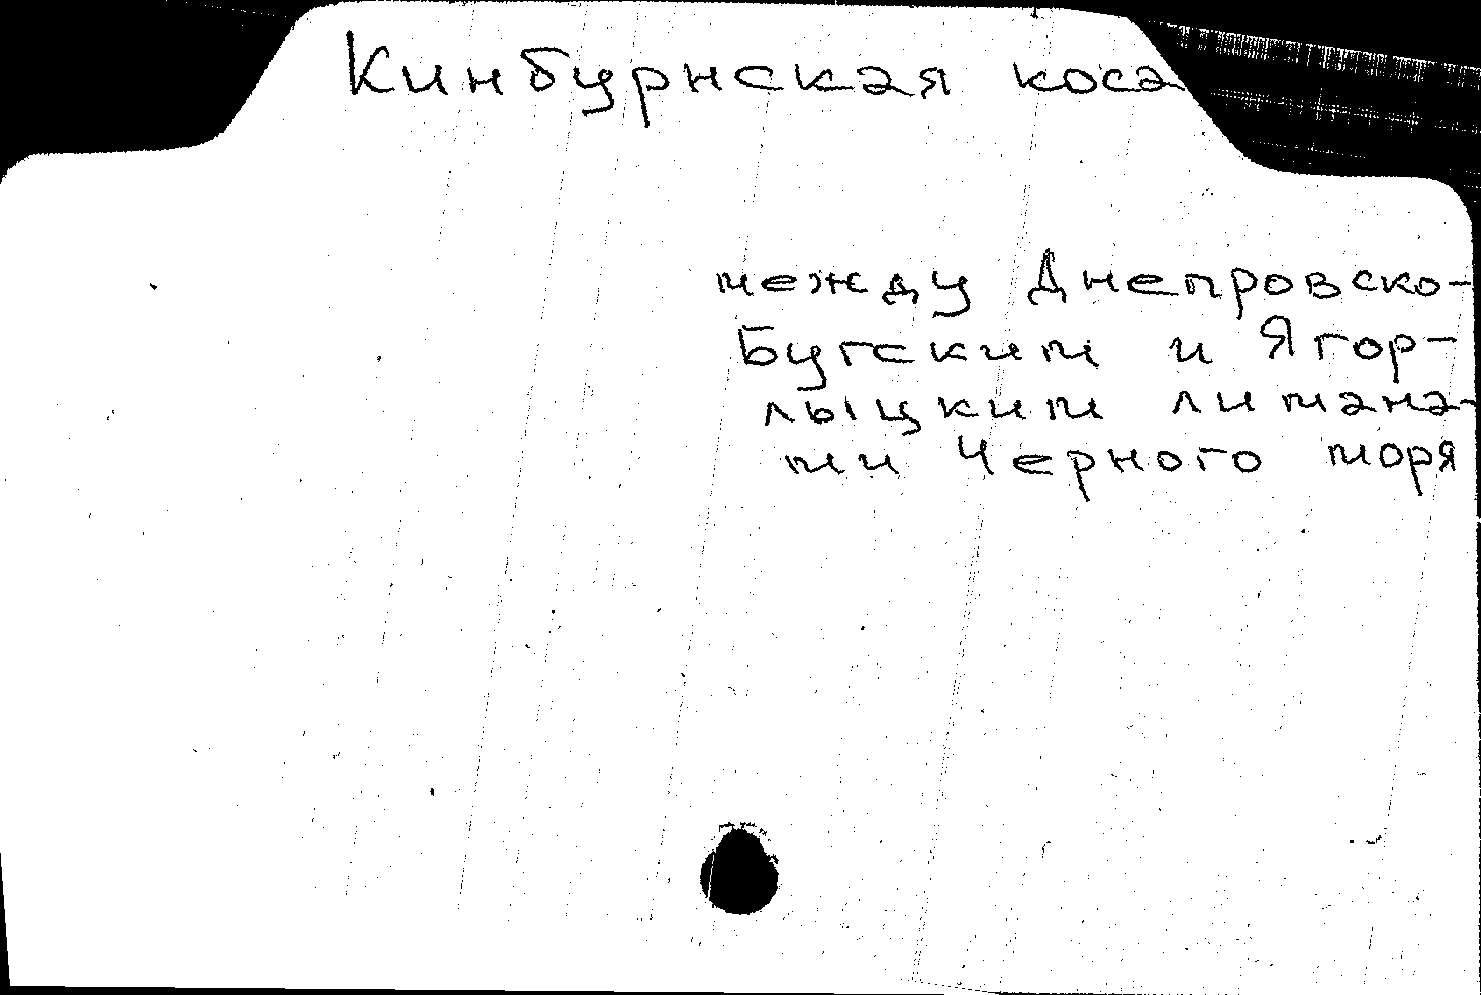 Кинбурнская коса
между Днепровско-
Бугским и Ягор-
лыцким лимана-
ми Черного моря